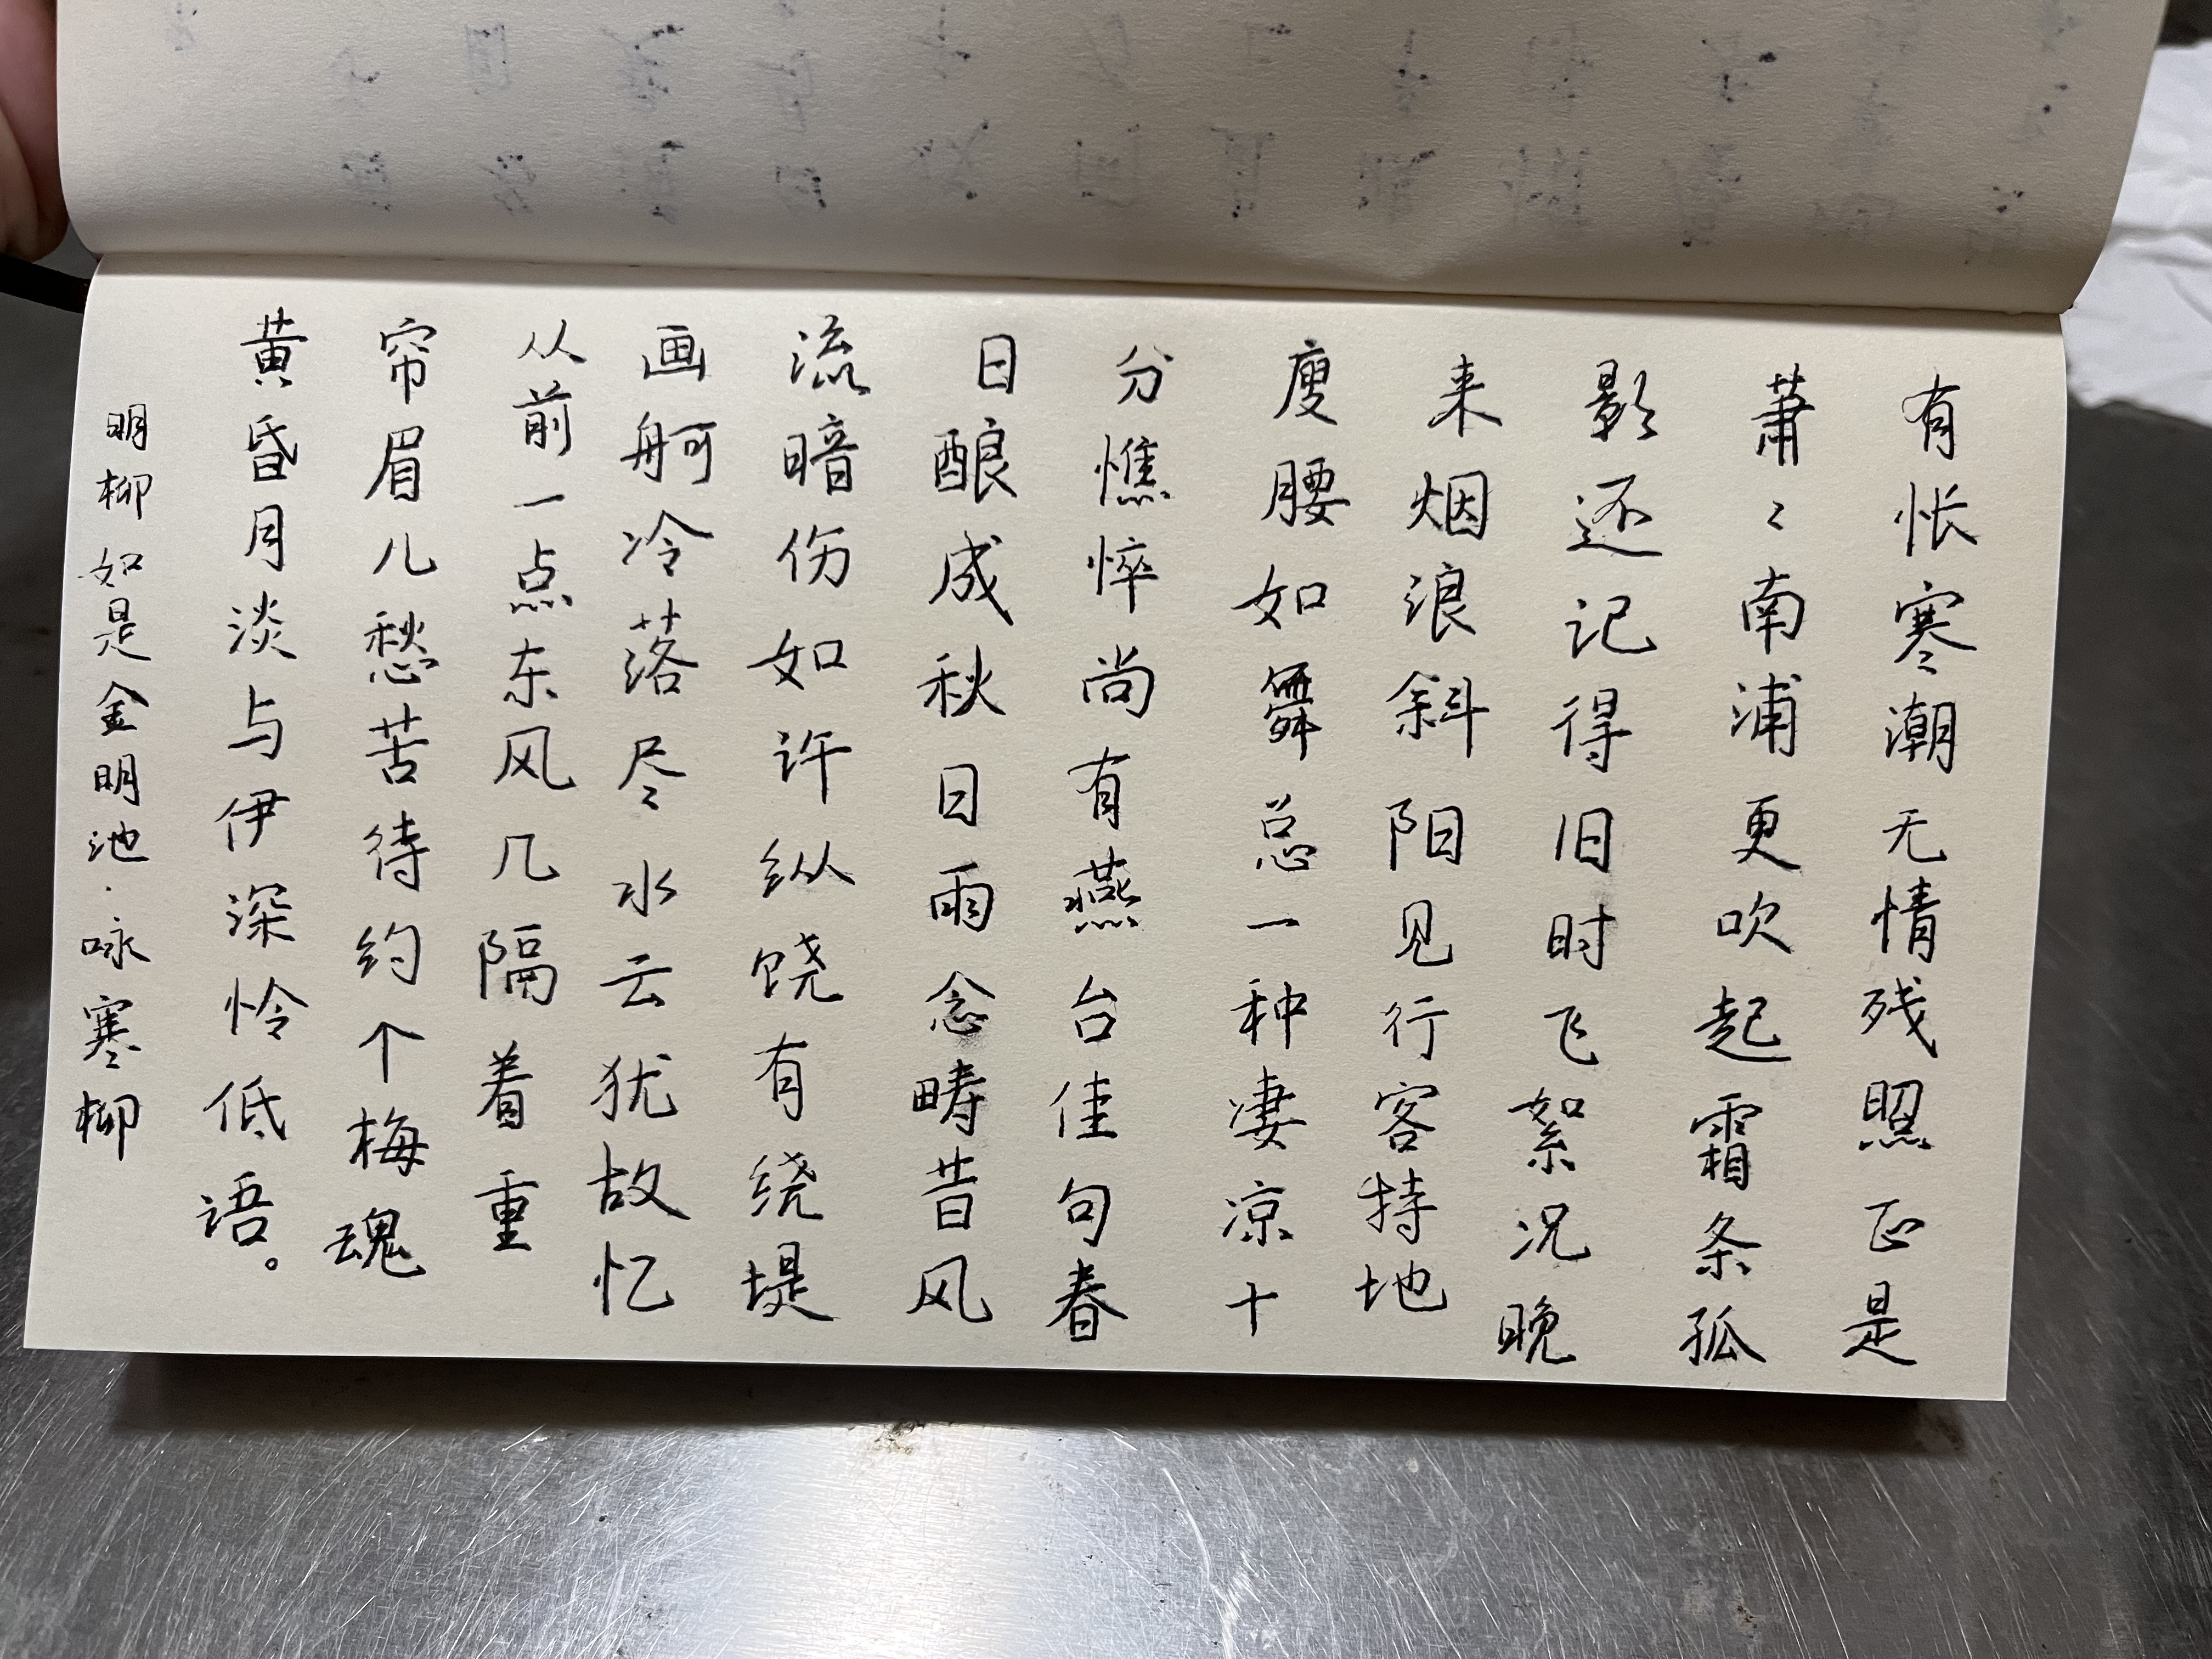 有怅寒潮无情残照正是
萧〻南浦更吹起霜条孤
影还记得旧时飞絮况晚
来烟浪斜阳见行客特地
瘦腰如舞总一种凄凉十
分憔悴尚有燕台佳句春
日酿成秋日雨念畴昔风
流暗伤如许纵饶有绕堤
画舸冷落尽水云犹故忆
从前一点东风几隔着重
帘眉儿愁苦待约个梅魂
黄昏月淡与伊深怜低语。
明柳如是金明池·咏寒柳